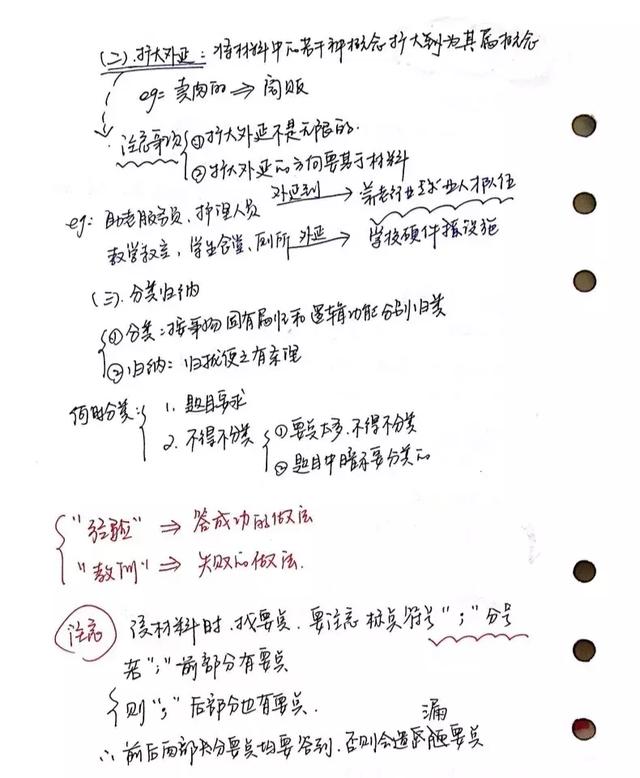 (二).扩大外延:将材料中的若干种概念扩大到为其属概念
eg:卖肉的⇒商贩
注意事项 ①扩大外延不是无限的.
②扩大外延的方向要基于材料
eg:助老服务员、护理人员 外延到→ 养老行业专业人才队伍
教学教室,学生食堂、厕所 外延→ 学校硬件设施
(三).分类归纳
①分类:按事物固有属性和逻辑功能分别归类
②归纳:归拢使之有条理
何时分类: 1. 题目要求
2. 不得不分类 ①要点太多.不得不分类
②题目中暗示要分类的
"经验" ⇒ 答成功的做法
"教训" ⇒ 失败的做法.
注意 读材料时.找要点.要注意标点符号";"分号
若";"前部分有要点
则";"后部分也有要点.
∴前后两部分要点均要答到.否则会遗漏要点